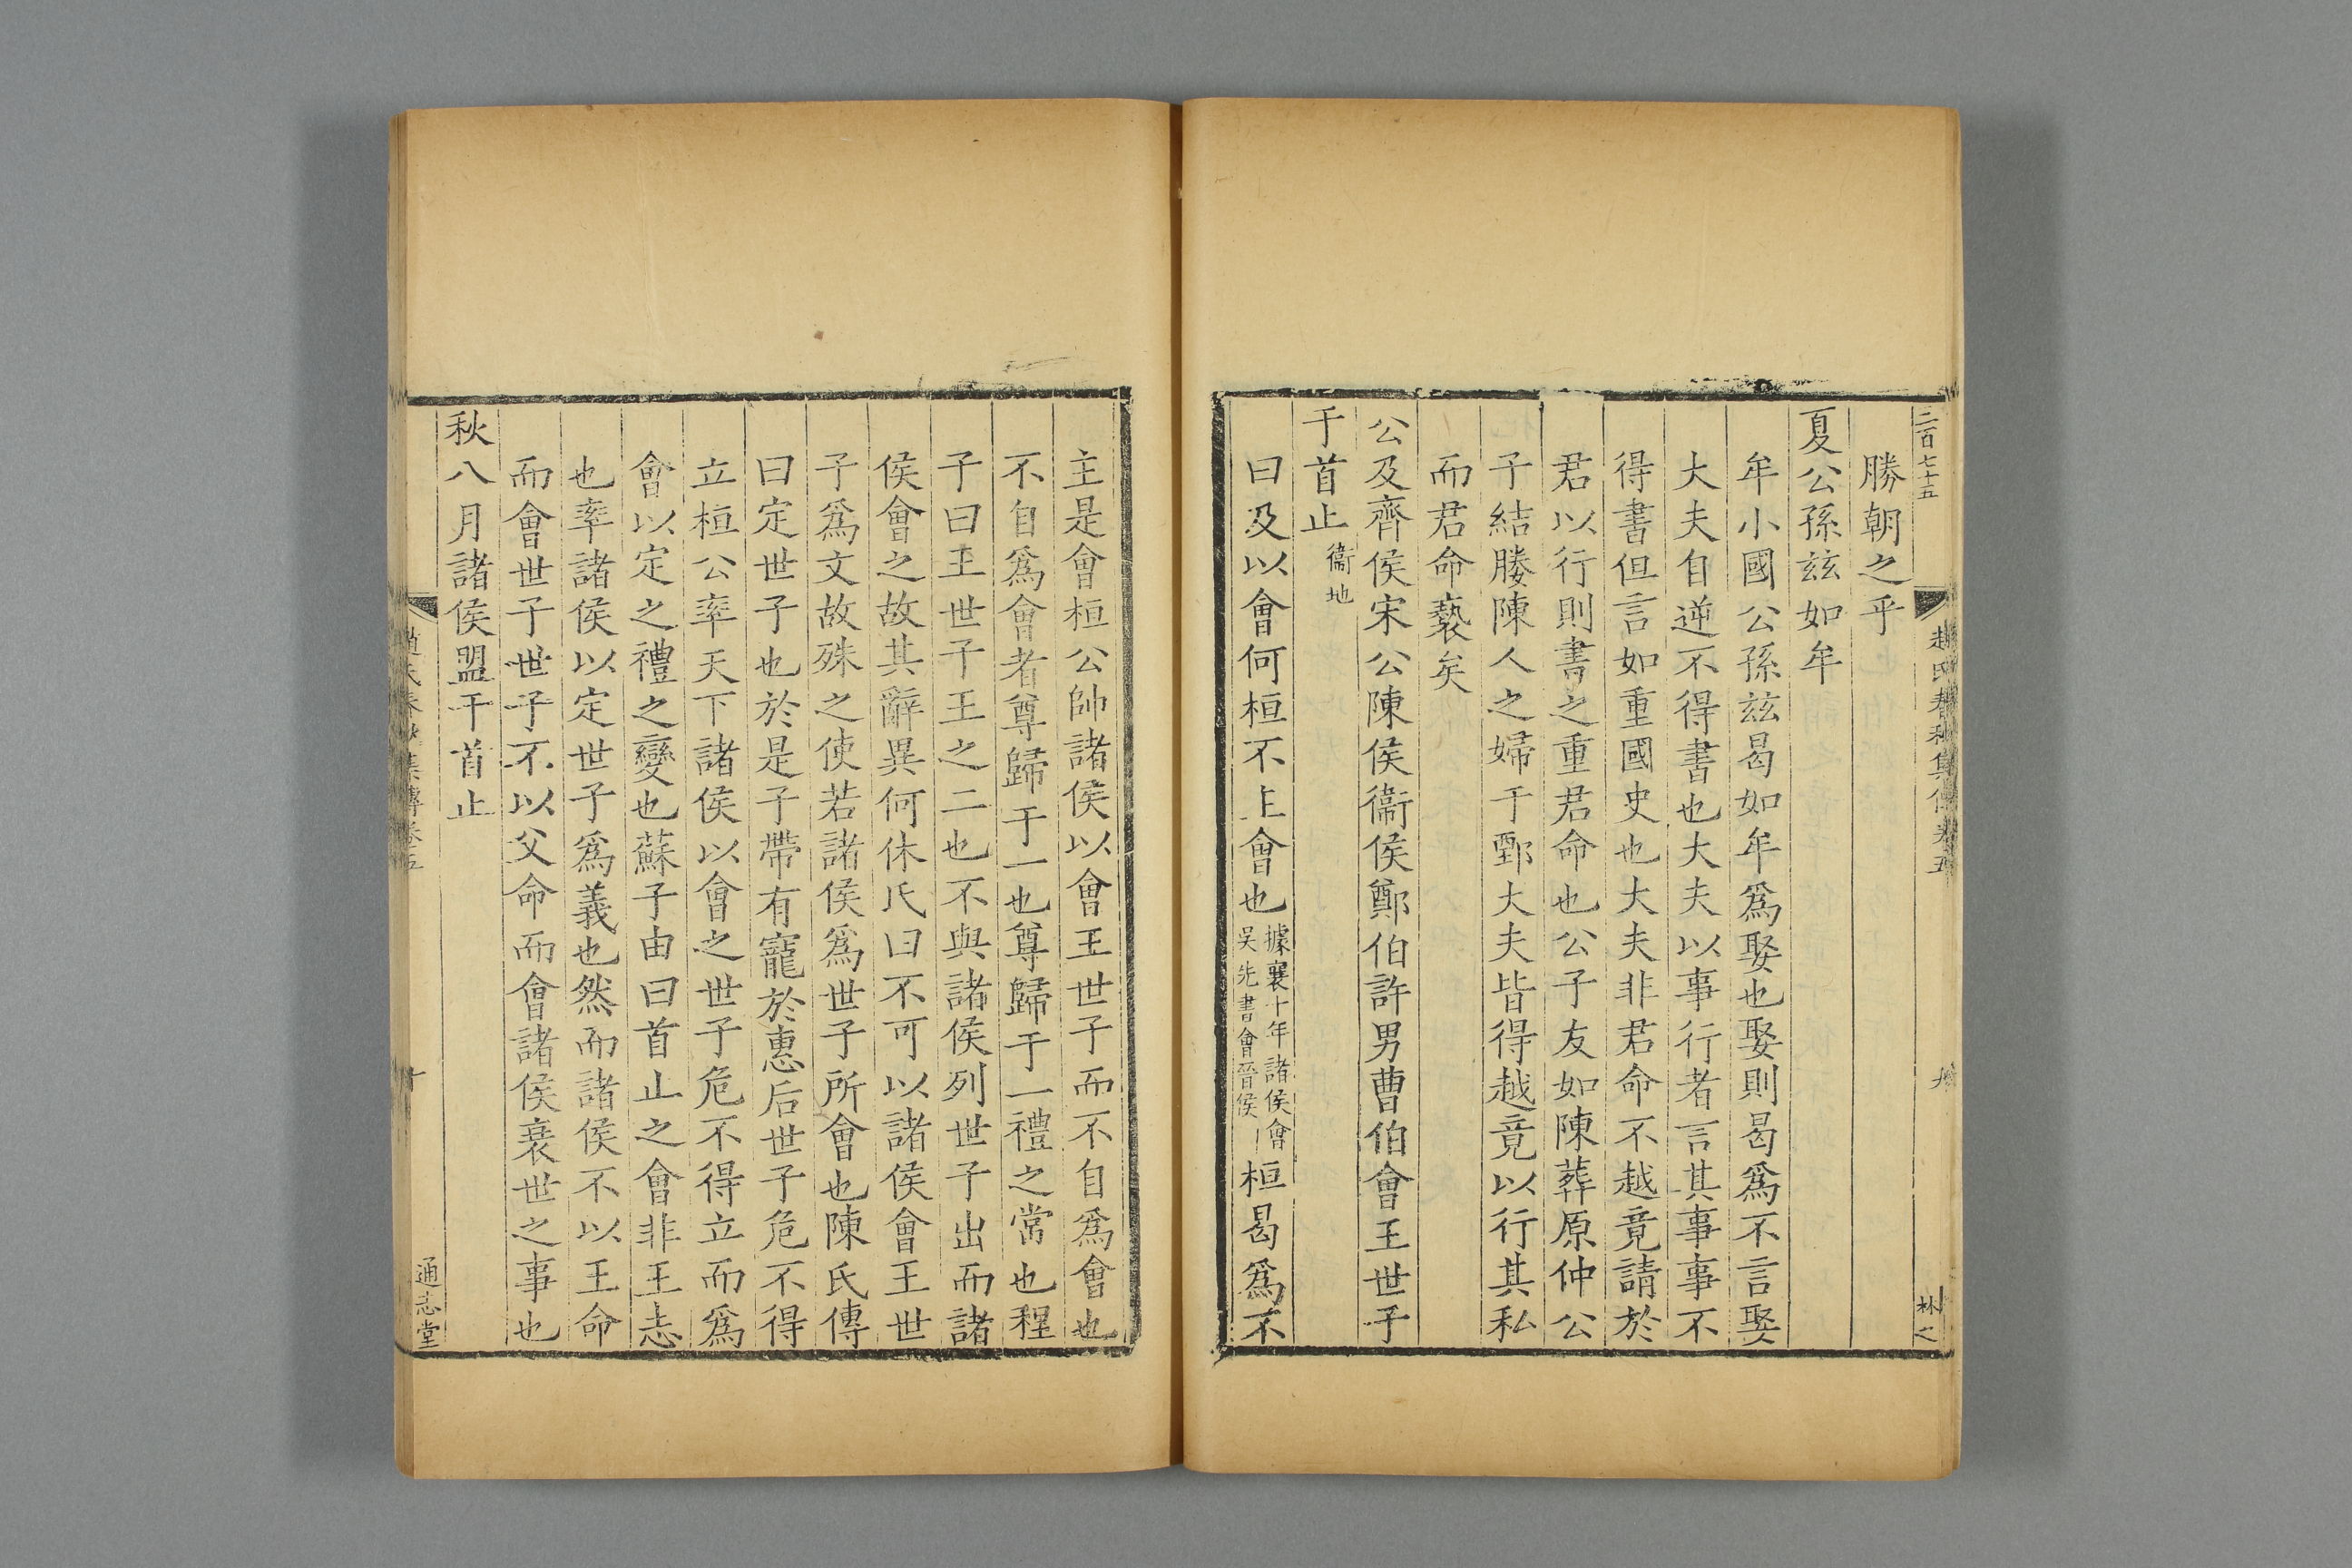 二百七十五
趙氏春秋集傳卷五
九
林之
勝朝之乎
夏公孫玆如牟
牟小國公孫玆曷如牟爲娶也娶則曷爲不言娶
大夫自逆不得書也大夫以事行者言其事事不
得書但言如重國史也大夫非君命不越竟請於
君以行則書之重君命也公子友如陳葬原仲公
子結媵陳人之婦于鄄大夫皆得越竟以行其私
而君命褻矣
公及齊侯宋公陳侯衞侯鄭伯許男曹伯會王世子
于首止衞地
曰及以會何桓不上會也據襄十年諸侯會
吳先書會晉侯桓曷爲不
主是會桓公帥諸侯以會王世子而不自爲會也
不自爲會者尊歸于一也尊歸于一禮之常也程
子曰王世子王之二也不與諸侯列世子出而諸
侯會之故其辭異何休氏曰不可以諸侯會王世
子爲文故殊之使若諸侯爲世子所會也陳氏傳
曰定世子也於是子帶有寵於惠后世子危不得
立桓公率天下諸侯以會之世子危不得立而爲
會以定之禮之變也蘇子由曰首止之會非王志
也率諸侯以定世子爲義也然而諸侯不以王命
而會世子世子不以父命而會諸侯衰世之事也
秋八月諸侯盟于首止
趙氏春秋集傳卷五
十
通志堂